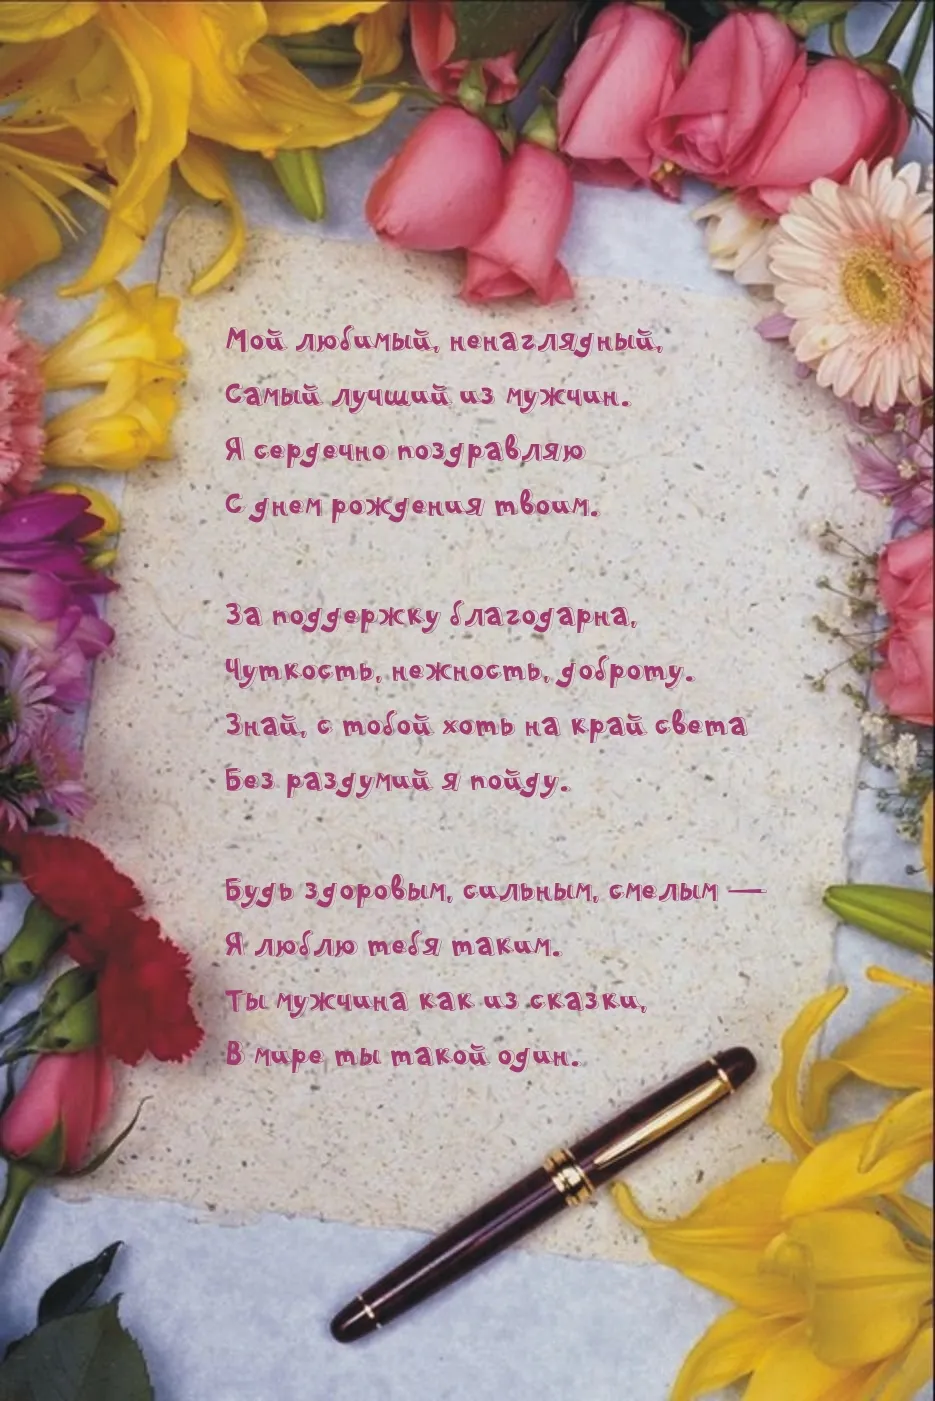 Мой любимый, ненаглядный,
Самый лучший из мужчин.
Я сердечно поздравляю
С днем рождения твоим.
За поддержку благодарна,
Чуткость, нежность, доброту.
Знай, с тобой хоть на край света
Без раздумий я пойду.
Будь здоровым, сильным, смелым —
Я люблю тебя таким.
Ты мужчина как из сказки,
В мире ты такой один.